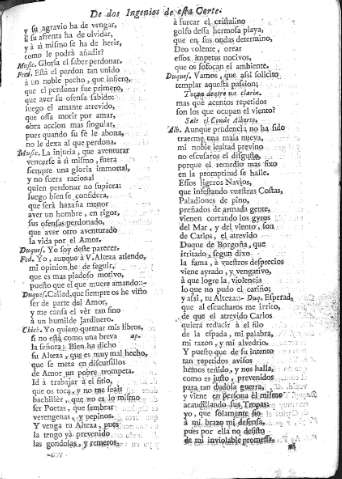 De dos Ingenios de esta Corte.
y su agravio ha de vengar,
si su afrenta ha de olvidar,
y à si mismo se ha de herir,
como le podrà añadir?
Music. Gloria el saber perdonar.
Fed. Està el perdon tan unido
à un noble pecho, que infiero,
que el perdonar fue primero,
que aver su ofensa sabido:
luego el amante atrevido,
que osa morir por amar,
obra accion mas singular,
pues quando su fè le abona,
no le dexa al que perdona.
Music. La injuria, que aventurar
vencerse à si mismo, fuera
siempre una gloria inmortal,
y no fuera racional
quien perdonar no supiera:
luego bien se considera,
que serà hazaña menor
aver un hombre, en rigor,
sus ofensas perdonado,
que aver otro aventurado
la vida por el Amor.
Duques. Yo soy deste parecer.
Fed. Yo, aunque à V. Alteza atiendo,
mi opinion he de seguir,
que es mas piadoso motivo,
puesto que el que muere amando:-
Duques. Callad, que siempre os he visto
ser de parte del Amor,
y me cansa el vèr tan fino
à un humilde Jardinero.
Chic. Yo quiero quemar mis libros,
si no està como una breva ap.
la señora: Bien ha dicho
su Alteza, que es muy mal hecho,
que se meta en discursillos
de Amor un pobre trompeta.
Id à trabajar à el sitio,
que os toca, y no me seais
bachiller, que no es lo mismo
ser Poeta, que sembrar
verengenas, y pepinos.
Y venga tu Alteza, pues
la tengo yà prevenido
las gondolas, y remeros,
à surcar el cristalino
golfo dessa hermosa playa,
que en sus ondas determino,
Deo volente, orear
essos impetus nocivos,
que os sofocan el ambiente.
Duques. Vamos, que assi solicito
templar aquesta passion;
Tocan dentro un clarin.
mas què acentos repetidos
son los que ocupan el viento?
Sale el Conde Alberto.
Alb. Aunque prudencia no ha sido
traerme una mala nueva,
mi noble lealtad previno
no escusaros el disgusto,
porque el remedio mas fixo
en la promptitud se halle.
Essos ligeros Navios,
que infestando vuestras Costas,
Paladiones de pino,
preñados de armada gente,
vienen cortando los gyros
del Mar, y del viento, son
de Carlos, el atrevido
Duque de Borgoña, que
irritado, segun dixo
la fama, à vuestros desprecios
viene ayrado, y vengativo,
à que logre la violencia
lo que no pudo el cariño;
y assi, tu Alteza:- Duq. Esperad,
que al escucharos me irrito,
de que el atrevido Carlos
quiera reducir à el filo
de la espada, mi palabra,
mi razon, y mi alvedrio.
Y puesto que de su intento
tan repetidos avisos
hemos tenido, y nos halla,
como es justo, prevenidos
para tan dudosa guerra,
y viene en persona èl mismo
acaudillando sus Tropas:
yo, que solamente fio
à mi brazo mi defensa,
pues por ella no desisto
de mi inviolable promessa,